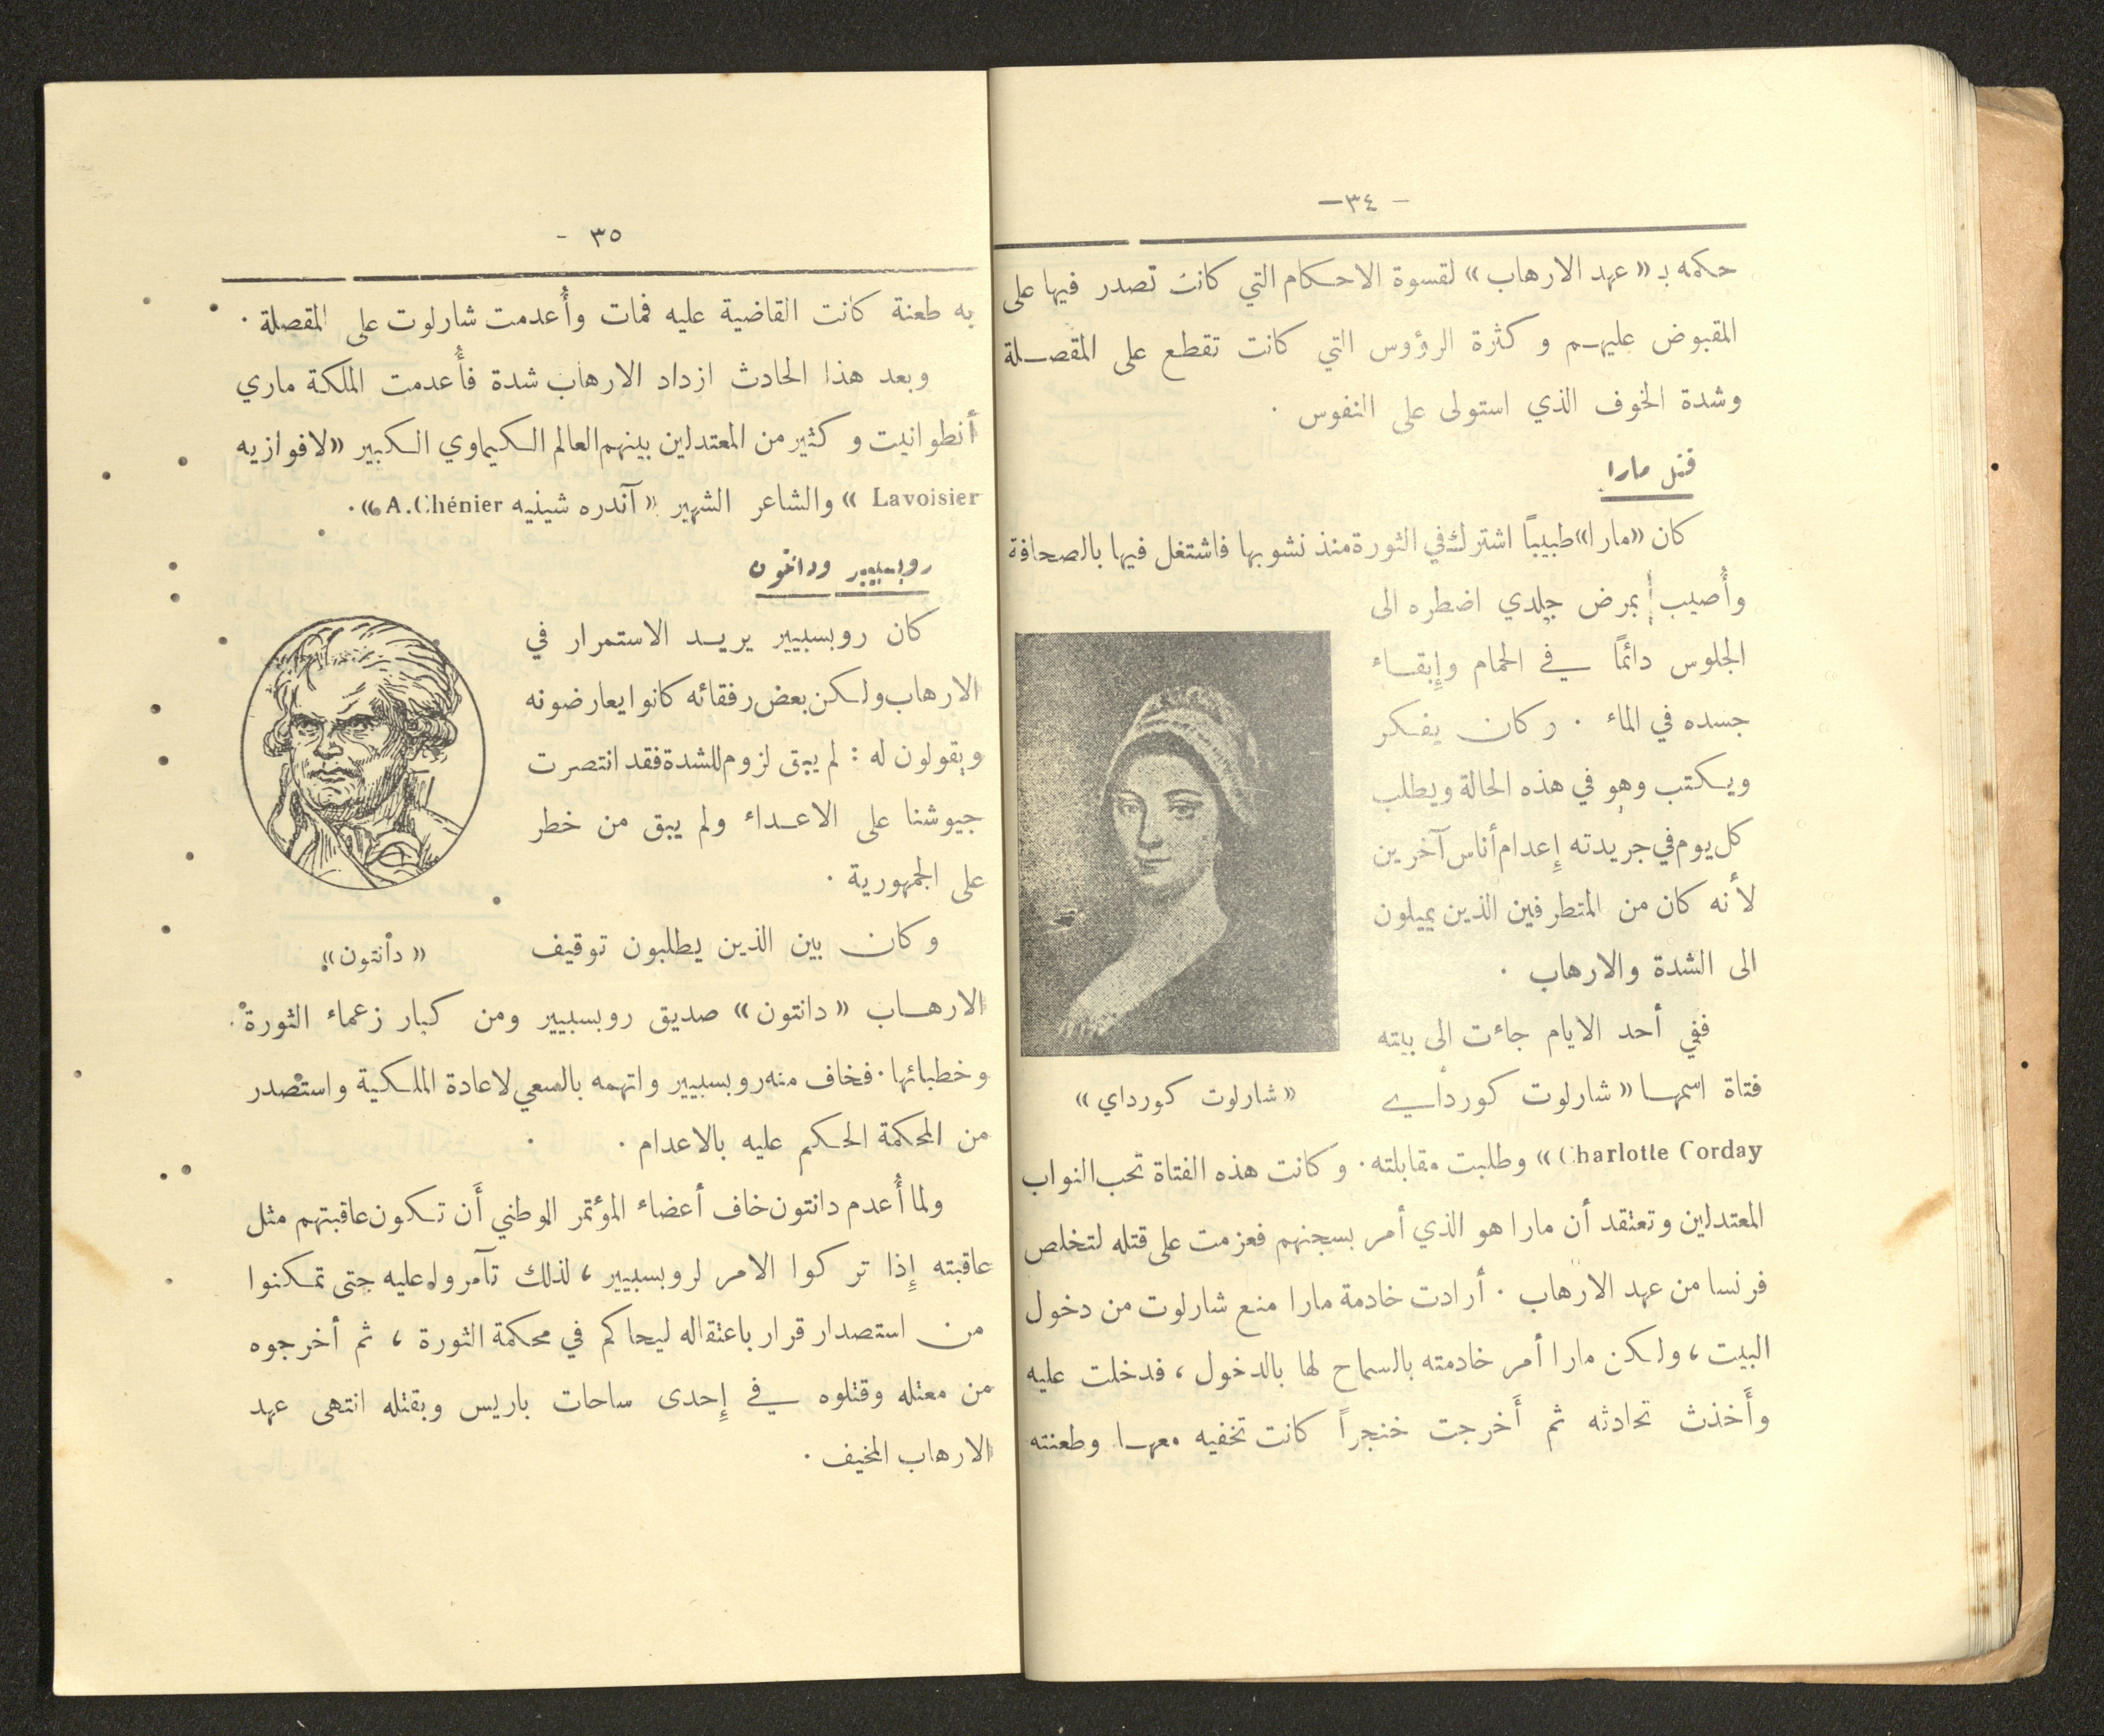 — ٣٤ —
حكمه بـ «عهد الارهاب» لقسوة الاحكام التي كانت تصدر فيها على
المقبوض عليهم وكثرة الرؤوس التي كانت تقطع على المقصلة
وشدة الخوف الذي استولى على النفوس .
قتل مارا
كان «مارا» طبيباً اشترك في الثورة منذ نشوبها فاشتغل فيها بالصحافة
وأُصيب بمرض جلدي اضطره الى
الجلوس دائماً في الحمام وإبقاء
جسده في الماء . وكان يفكر
ويكتب وهو في هذه الحالة ويطلب
كل يوم في جريدته إعدام أناس آخرين
لأنه كان من المتطرفين الذين يميلون
الى الشدة والارهاب .
ففي أحد الايام جاءت الى بيته
فتاة اسمها «شارلوت كورداي
«شارلوت كورداي»
Charlotte Corday» وطلبت مقابلته . وكانت هذه الفتاة تحب النواب
المعتدلين وتعتقد أن مارا هو الذي أمر بسجنهم فعزمت على قتله لتخلص
فرنسا من عهد الارهاب . أرادت خادمة مارا منع شارلوت من دخول
البيت ، ولكن مارا أمر خادمته بالسماح لها بالدخول ، فدخلت عليه
وأَخذت تحادثه ثم أَخرجت خنجراً كانت تخفيه معها وطعنته
٣٥ -
به طعنة كانت القاضية عليه فمات وأُعدمت شارلوت على المقصلة .
وبعد هذا الحادث ازداد الارهاب شدة فأُعدمت الملكة ماري
أنطوانيت وكثير من المعتدلين بينهم العالم الكيماوي الكبير «لافوازيه
Lavoisier» والشاعر الشهير «آندره شينيه A.Chénier» .
روبسبيير ودانتون
كان روبسبيير يريد الاستمرار في
الارهاب ولكن بعض رفقائه كانوا يعارضونه
ويقولون له : لم يبق لزوم للشدة فقد انتصرت
جيوشنا على الاعداء ولم يبق من خطر
على الجمهورية .
وكان بين الذين يطلبون توقيف
«دانتون»
الارهاب «دانتون» صديق روبسبيير ومن كبار زعماء الثورة
وخطبائها . فخاف منه روبسبيير واتهمه بالسعي لاعادة الملكية واستصدر
من المحكمة الحكم عليه بالاعدام .
ولما أُعدم دانتون خاف أعضاء المؤتمر الوطني أَن تكون عاقبتهم مثل
عاقبته إِذا تركوا الامر لروبسبيير ، لذلك تآمروا عليه حتى تمكنوا
من استصدار قرار باعتقاله ليحاكم في محكمة الثورة ، ثم أخرجوه
من معتله وقتلوه في إِحدى ساحات باريس وبقتله انتهى عهد
الارهاب المخيف .